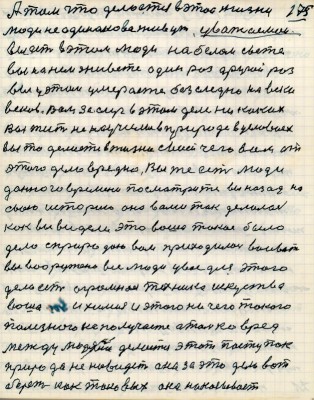 А там что делается в этой жизни 275
люди не одинаково живут, уважаемые
вы есть в этом люди на белом свете
вы на нем живете один раз другой раз
вы у этом умераете безследно на веки
веков. Вам заслуг в этом деле ни каких
Вы жить не научились в природе в условиях
вы то делаете в жизни своей чего вам от
этого дело вредно, Вы же есть люди
данного времени посмотрите вы назад на
свою историю она вами так делалась
как вы видели это ваше такое было
дело с природою вам приходилось воевать
вы вооружоны все люди уже для этого
дела есть огромная техника искуства
ваша и химия и этого ни чего такого
полезного не получаете а только вред
между людьми делаете этот поступок
природа не новидет она за это дело вот
берет как таковых она наказывает